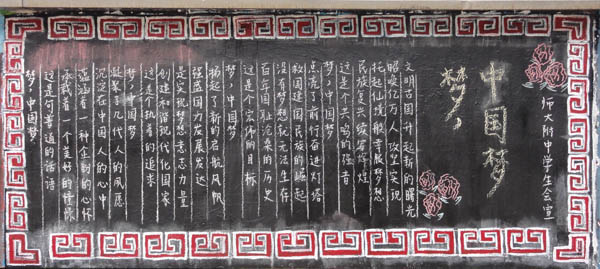 师大附中学生会宣
中国梦
梦，
文明古国升起新的曙光
唤亿万人攻坚实现
托起仙境般展梦想
民族复兴续写辉煌
这是个共鸣的强音
梦，中国梦
点亮了前行奋进灯塔
救国建国民族的崛起
没有梦想就无法生存
百年国耻沧桑的历史
这是个宏伟的目标
梦，中国梦
扬起了新的启航风帆
强盛国力发展发达
是实现梦想意志力量
创建和谐现代化国家
这是个执着的追求
梦，中国梦
凝聚了几代人的夙愿
沉淀在中国人的心中
蕴涵着一种企盼的心怀
承载着一个美好的憧憬
这是句普通的话语
梦，中国梦